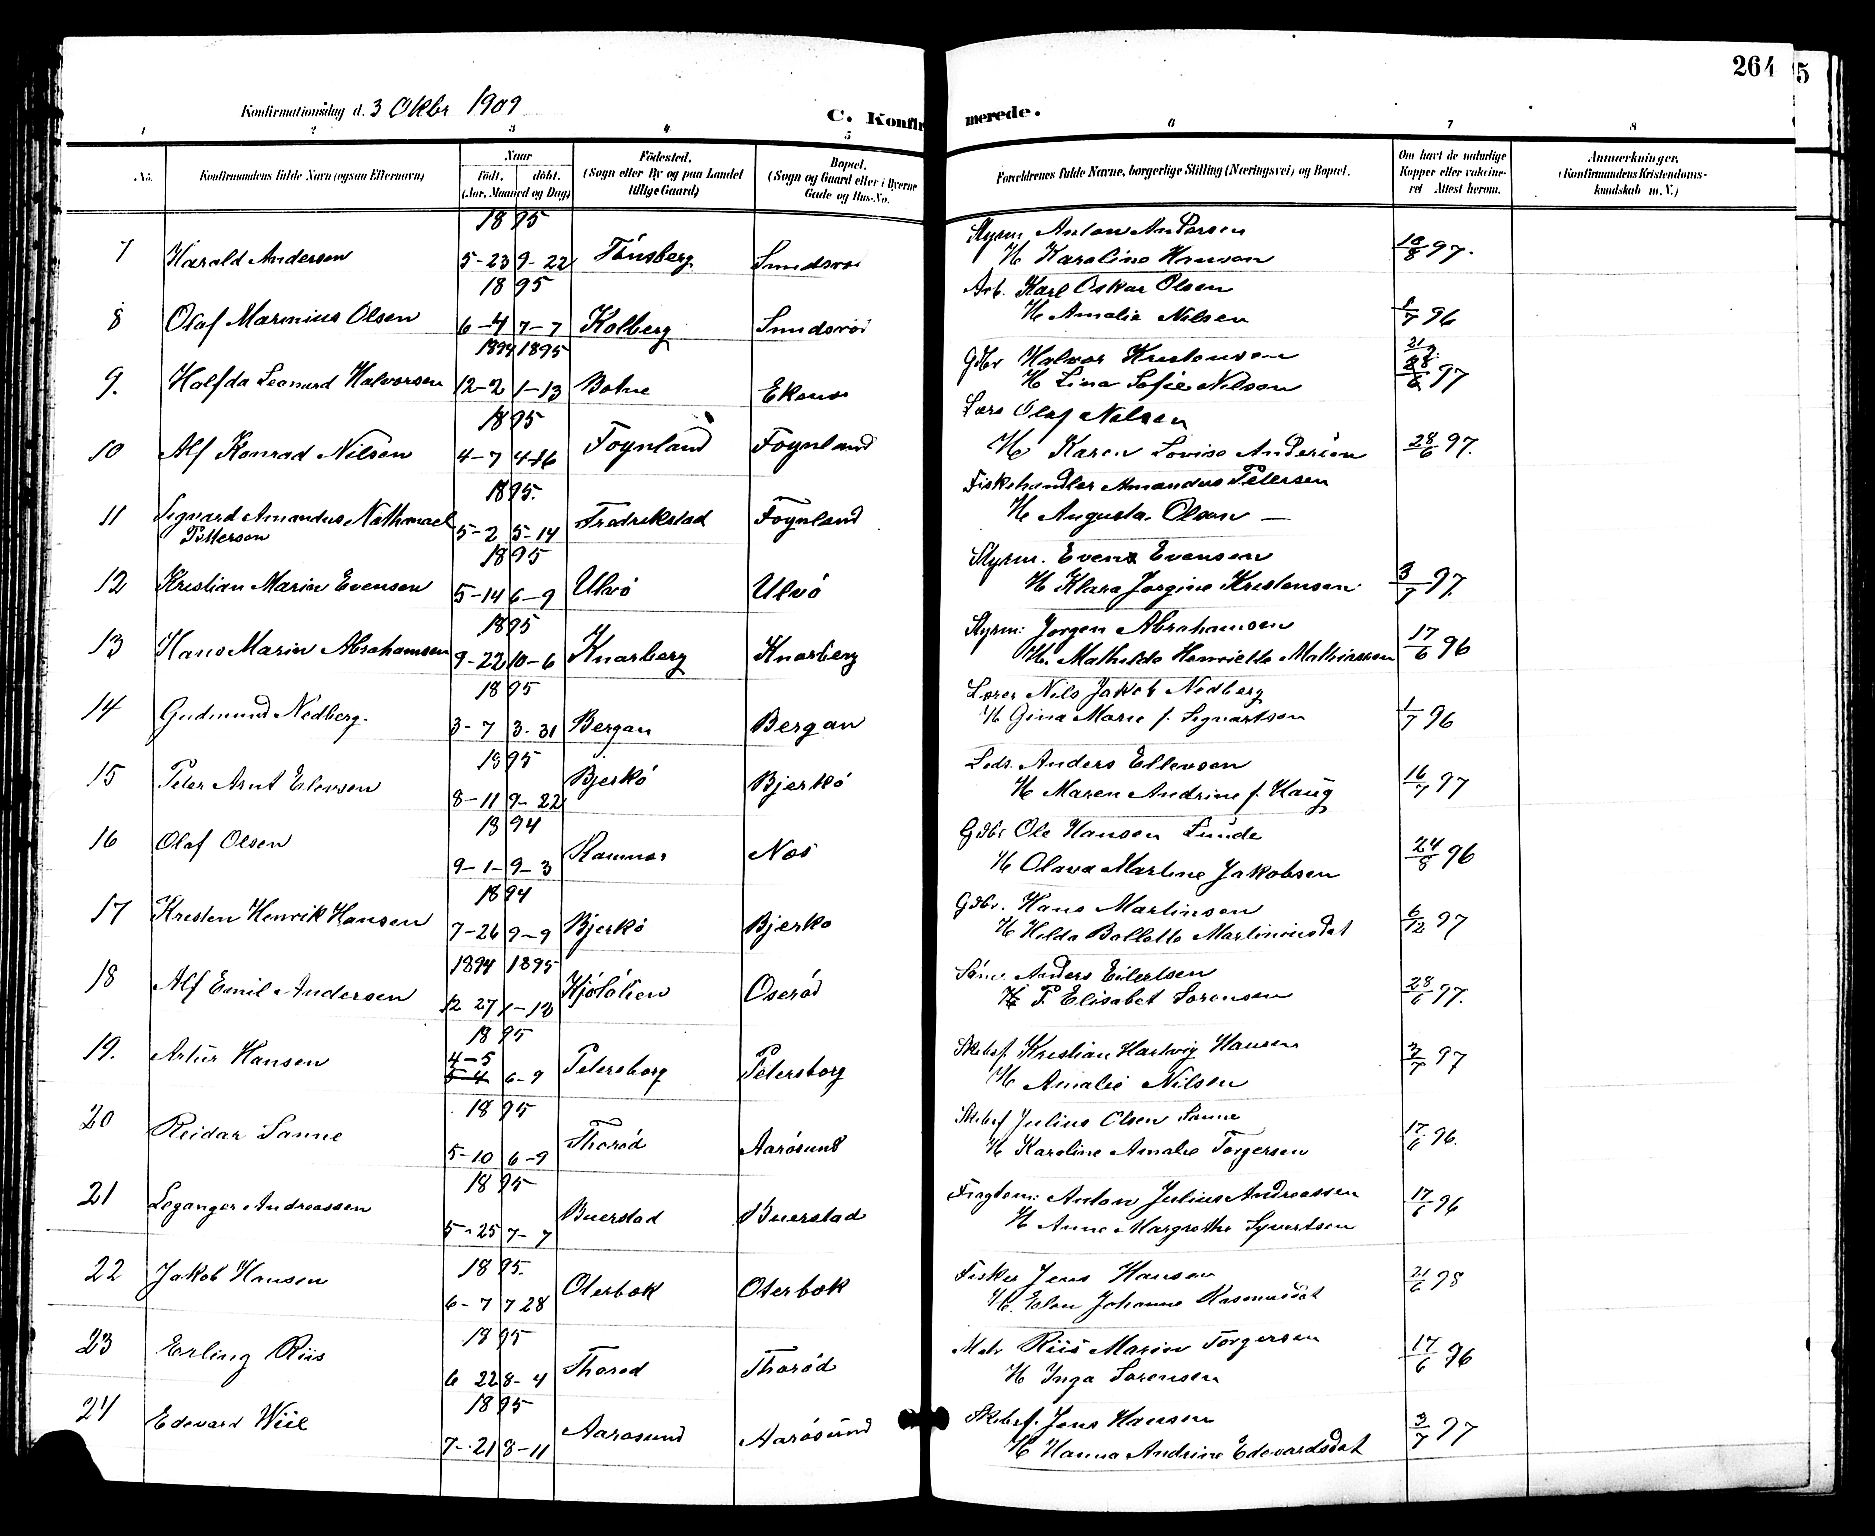 264
5
Konfirmationsdag d. 3 Oktbr 1909
C. Konfirmerede.
1 2 3 4 5 6 7 8
No. Konfirmandens fulde Navn (ogsaa Efternavn) Naar født. døbt. (Aar, Maaned og Dag) Födested. (Sogn eller By og paa Landet tillige Gaard) Bopæl. (Sogn og Gaard eller i Byerne Gade og Hus-No. Forældrenes fulde Navne, borgerlige Stilling (Næringsvei) og Bopæl. Om havt de naturlige Kopper eller vaccineret Attest herom. Anmærkninger, (Konfirmandens Kristendomskundskab m. V.)
1895 Styrm. Anton Andersen
7 Harald Andersen 5-23 9-22 Tönsberg Sundsvoi H Karoline Hansen 18/8 97.
1895 Arb. Karl Oskar Olsen
8 Olaf Marinius Olsen 6-4 7-7 Kolberg Sundsvoi H Amalie Nilsen 1/7 96
1894 1895 Gdbr Halvor Kristensen
9. Halfda Leonard Halvorsen 12-2 1-13 Botne Ekenes H Lina Sofie Nilsen 97
1895 Lars Olaf Nilsen
10 Alf Konrad Nilsen 4-7 4-16 Foynland Foynland H Karen Lovise Andersen 28/6 97.
1895. Fiskehandler Amandus Petersen
11 Sigvard Amandus Nathanael Pettersen 5-2 5-14 Fredrikstad Foynland H Augusta Olsen —
1895 Styrm. Even Evensen
12 Kristian Marin Evensen 5-14 6-9 Ulvö Ulvö H Klara Jorgine Kristensen 3/7 97.
1895 Styrm: Jorgen Abrahamsen
13 Hans Marin Abrahamsen 9-22 10-6 Knarberg Knarberg H. Mathilde Henriette Mathiassen 17/6 96
1895 Lærer Nils Jakob Nedberg
14 Gudmund Nedberg. 3-7 3-31 Bergan Bergan H Gina Marie f. Sigvartsen 1/7 96
1895 Lods. Anders Ellevsen
15 Peter Arnt Elevsen 8-11 9-22 Bjerkö Bjerkö H Maren Andrine f. Haug 16/7 97
1894 Gdbr Ole Hansen Lunde
16 Olaf Olsen 9-1- 9-3 Ramnes Nes H Olava Martine Jakobsen 24/8 96
1894 Gdbr. Hans Martinsen
17 Kresten Henrik Hansen 7-26 9-9 Bjerkö Bjerko H Hilda Bollette Martiniusdat 6/12 97
1894 1895 Anders Eilertsen
18 Alf Emil Andersen 12 27 1-13 Kjölölien Oseröd H P Elisabet Sorensen 28/6 97.
1895 Skibsf. Kristian Hartvig Hansen
19. Artur Hansen 4-5 5-4 6-9 Petersborg Petersborg H Amalie Nilsen 3/7 97
1895 Skibsf Julius Olsen Sanne
20 Reidar Sanne 5-10 6-9 Thoröd Aarösund H Karoline Amalie Torgersen 17/6 96.
1895 Anton Julius Andreassen
21 Leganger Andreassen 5-25 7-7 Buerstad Buerstad H Anne Margrethe Syvertsen 17/6 96
1895. Fisker Jens Hansen
22 Jakob Hansen 6-7 7 28 Oterbek Oterbek H. Elen Johanne Rasmusdat 21/6 98
1895 Riis Marin Torgersen
23 Erling Riis 6 22 8-4 Thorod Thoröd H Inga Sorensen 17/6 96
1895 Skibsf. Jens Hansen
24 Edevard Wiil 7-21 8-11 Aarosund Aarösund H Hanna Andrine Edevardsdat 3/7 97